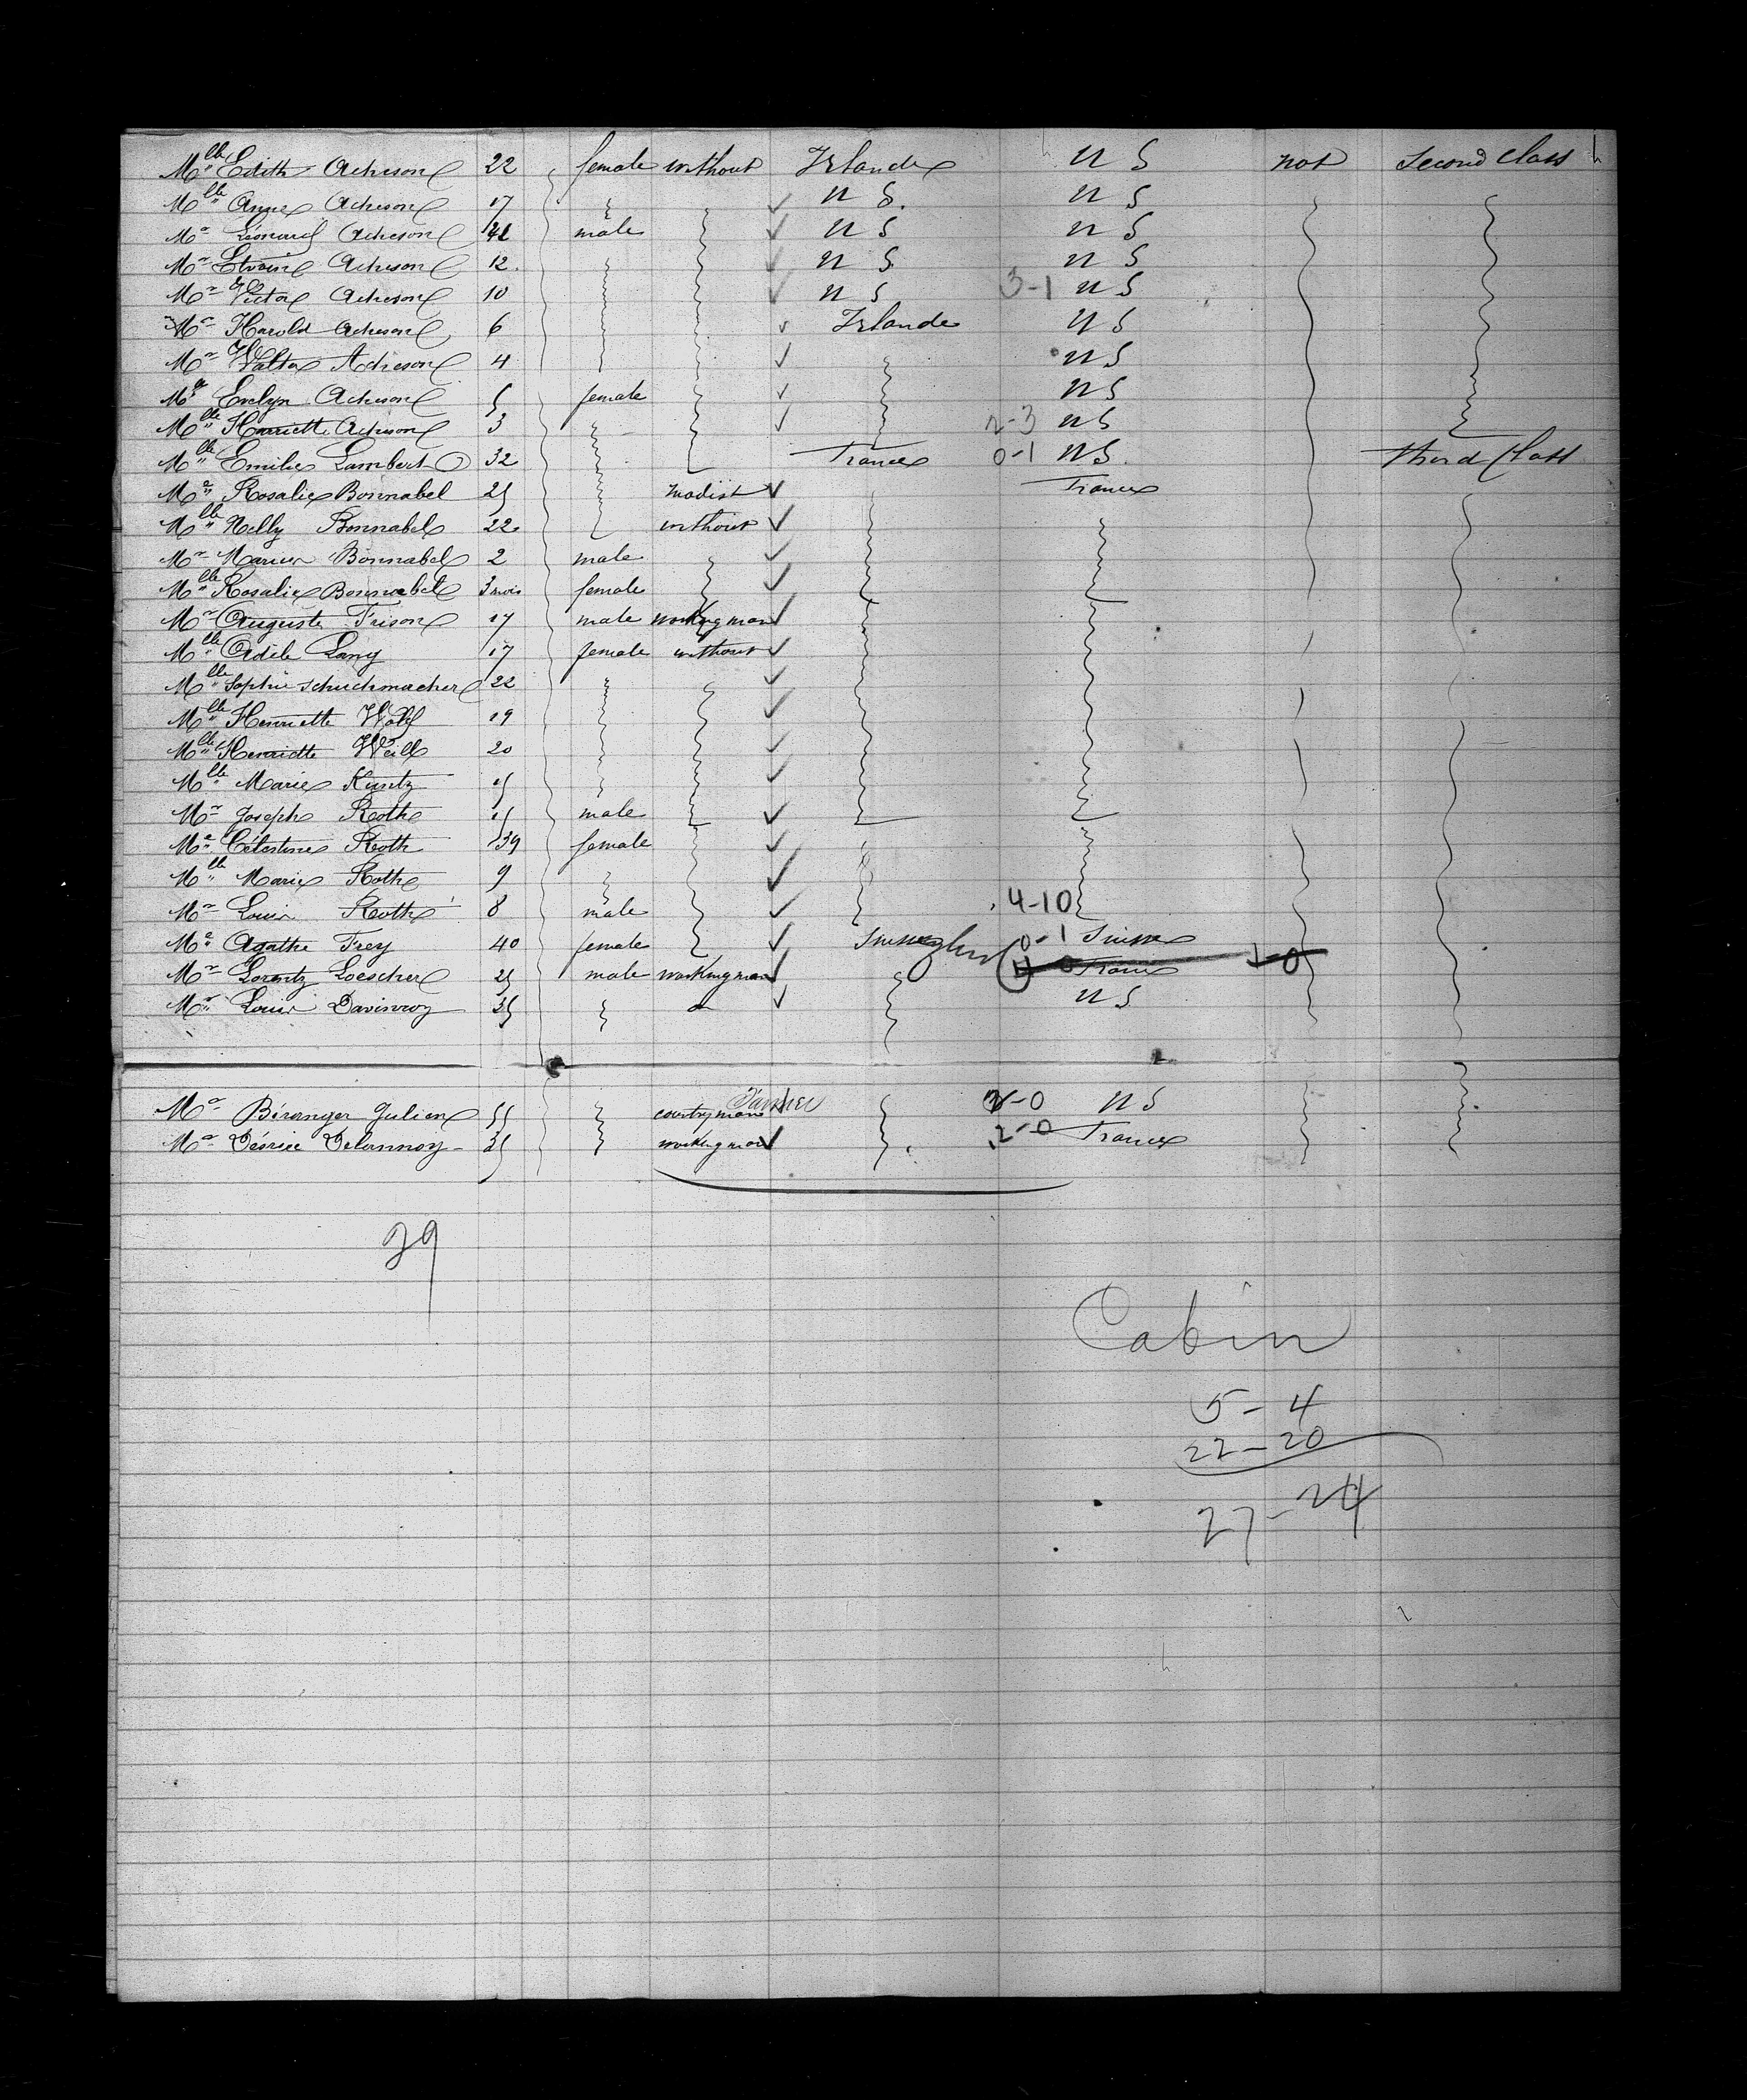 Mlle Edith Acheson 22 female without Irlande U S not Second Class
Mlle Anne Acheson 17 U S. U S
Mr Léonard Acheson male U S U S
Mr Acheson 12. U S. U S
Mr Victor Acheson 10 U S 3-1 U S
Mr Harold Acheson 6 Irlande U S
Mr Walter Acheson 4 U S
Mlle Evelyn Acheson 5 female U S
Mlle Harriette Acheson 3 2-3 U S
Mlle Emilie Lambert 32 France 0-1 U S. third Class
Me Rosalie Bonnabel 25 modist France
Mlle Nelly Bonnabel 22 without
Mr Marius Bonnabel 2 male
Mlle Rosalie Bonnabel 3 mois female
Mr Auguste Frison 17 male workingman
Mlle Adèle Lany 17 female without
Mlle Sophie Schuchmacher 22
Mlle Henriette Wolf 19
Mlle Henriette Weill 20
Mlle Marie Kuntz 15
Mr Joseph Roth 15 male
Me Célestine Roth 39 female
Mlle Marie Roth 9
Mr Louis Roth 8 male 4-10
Me Agathe Frey 40 female 0-1 Suisse
Mr Lorentz Loescher 25 male workingman France 1-0
Mr Louis 35 U S
Mr Béranger Julien 55 countryman Farmer -0 U S
Mr Désirée Delannoy 35 workingman 2-0 France
29
Cabin
5-4
22-20
27-24